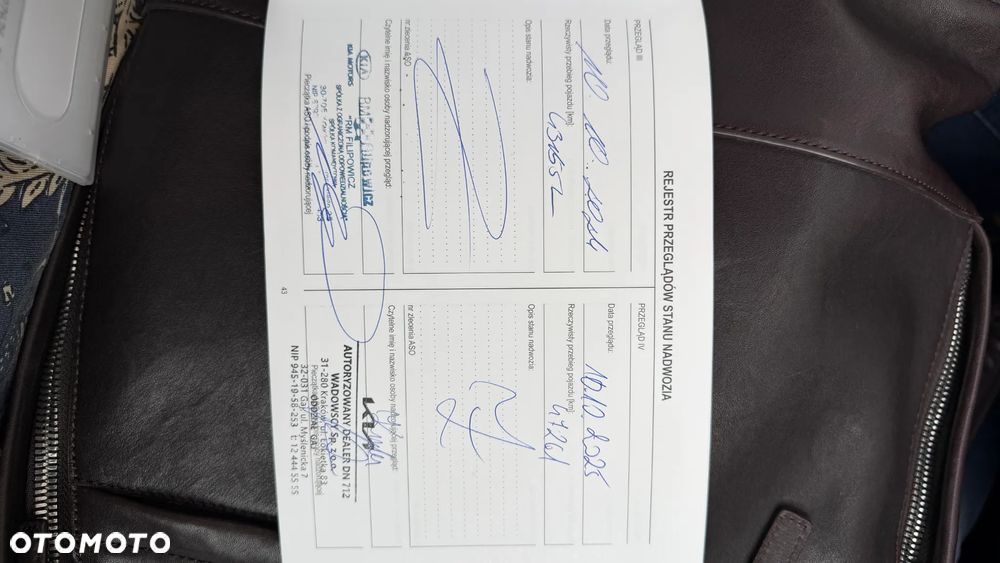 REJESTR PRZEGLĄDÓW STANU NADWOZIA
PRZEGLĄD III
Data przeglądu:
Rzeczywisty przebieg pojazdu [km]:
Opis stanu nadwozia:
nr zlecenia ASO
Czytelne imię i nazwisko osoby nadzorującej przegląd:
KIA
KIA MOTORS
"RM FILIPOWICZ
SPÓŁKA Z OGRANICZONĄ ODPOWIEDZIALNOŚCIĄ"
SPÓŁKA KOMANDYTOWA
Pieczątka ASO i podpis osoby nadzorującej
PRZEGLĄD IV
Data przeglądu:
10.10.2025
Rzeczywisty przebieg pojazdu [km]:
47261
Opis stanu nadwozia:
nr zlecenia ASO
Czytelne imię i nazwisko osoby nadzorującej przegląd:
KIA
AUTORYZOWANY DEALER DN 712
WADOWSCY Sp. z o.o.
31-280 Kraków, ul. Łokietka 83
ODDZIAŁ GAJ
32-031 Gaj, ul. Myślenicka 7
NIP 945-19-58-253 t: 12 444 55 55
43
OTOMOTO